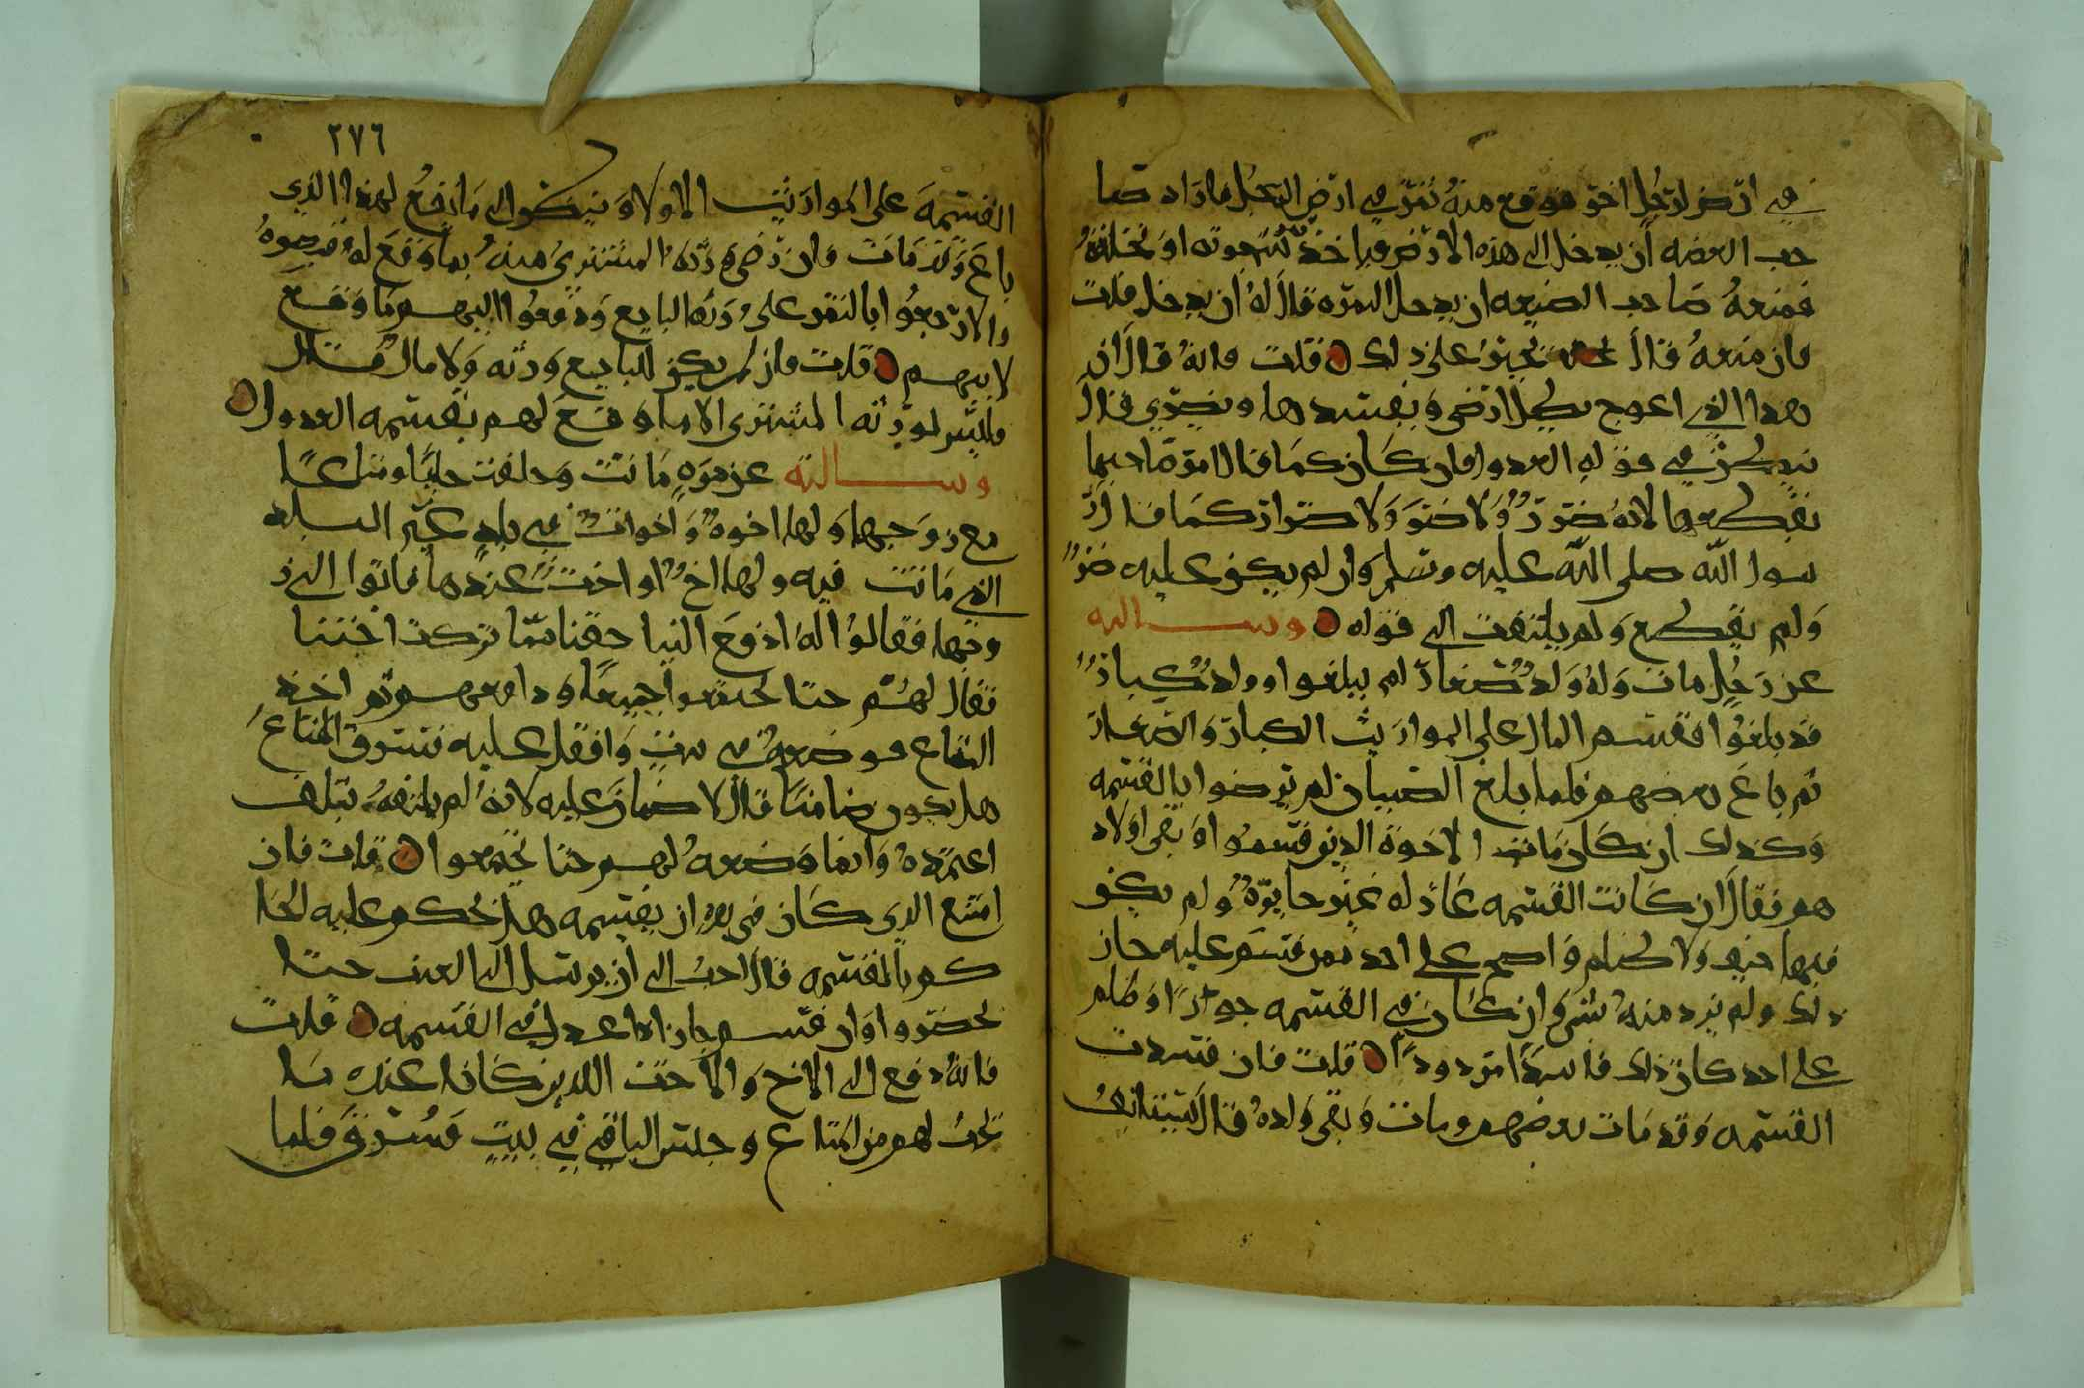 في ارض لرجل اخر فوقع منه تمر في ارض الرجل فاراد صا
حب العضه ان يدخل الى هذه الارض فياخذ تمرته او نخلته
فمنعه صاحب الضيعه ان يدخل المره قال له ان يدخل قلت
فان منعه قال يجبر على ذلك قلت فانه قال ان
هذا الذي اعوج بطل ارضي ويفسدها ويضرني قال
ينظر في قوله العدول فان كان كما قال امر صاحبها
بقطعها لانه ضرر ولا ضرر ولا ضرار كما قال ر
سول الله صلى الله عليه وسلم وان لم يكن عليه ضرر
ولم يقطع ولم يلتفت الى قوله وسالته
عن رجل مات وله ولد صغار لم يبلغوا وولد كبار
قد بلغوا فقسم المال على المواريث الكبار والصغار
ثم باع بعضهم فلما بلغ الصبيان لم يرضوا بالقسمه
وكذلك ان كان مات الاخوة الذين قسموا وبقي اولاد
هم فقال ان كانت القسمه عادله غير جايرة ولم يكن
فيها حيف ولا ظلم واضح على احد ممن قسم عليه جاز
ذلك ولم يرد منه شي وان كان في القسمه جورا وظلم
على احد كان ذلك فاسدا مردودا قلت فان فسدت
القسمه وقد مات بعضهم ومات وبقي ولده قال يستانف
٢٧٦
القسمه على المواريث الاولا وينظر الى ما ارفع لهذا الذي
باع وقد مات فان رضي ورثة المشتري منه بما وقع له قبضوه
والا رجعوا بالثمن على ورثه البايع ودفعوا اليهم ما وقع
لابيهم قلت فان لم يكن للبايع ورثه ولا مال قال
فليس لورثه المشتري الا ما وقع لهم بقسمه العدول
وسالته عن مره ماتت وخلفت حليا ومتاعا
مع زوجها ولها اخوه واخوات في بلد غير البلد
الذي ماتت فيه ولها اخ او اخت عندها فاتوا الى ز
وجها فقالوا له ادفع الينا حقنا مما تركت اختنا
فقال لهم حتا تجتمعوا جميعا ودافعهم ثم اخذ
المتاع فوضعه في بيت واقفل عليه فسرق المتاع
هل يكون ضامنا قال لا ضمان عليه لانه لم يلفه بتلف
اعتمده وانما وضعه لهم حتا يجتمعوا قلت فان
امتنع الذي كان في يده ان يقسمه هل يحكم عليه الحا
كم بالقسمه قال احب الي ان يرسل الى الغيب حتا
يحضروا وان قسم جاز اذا عدل في القسمه قلت
فانه دفع الى الاخ والاخت اللذين كانا عنده ما
يجب لهم من المتاع وحبس الباقي في بيت فسرق فلما